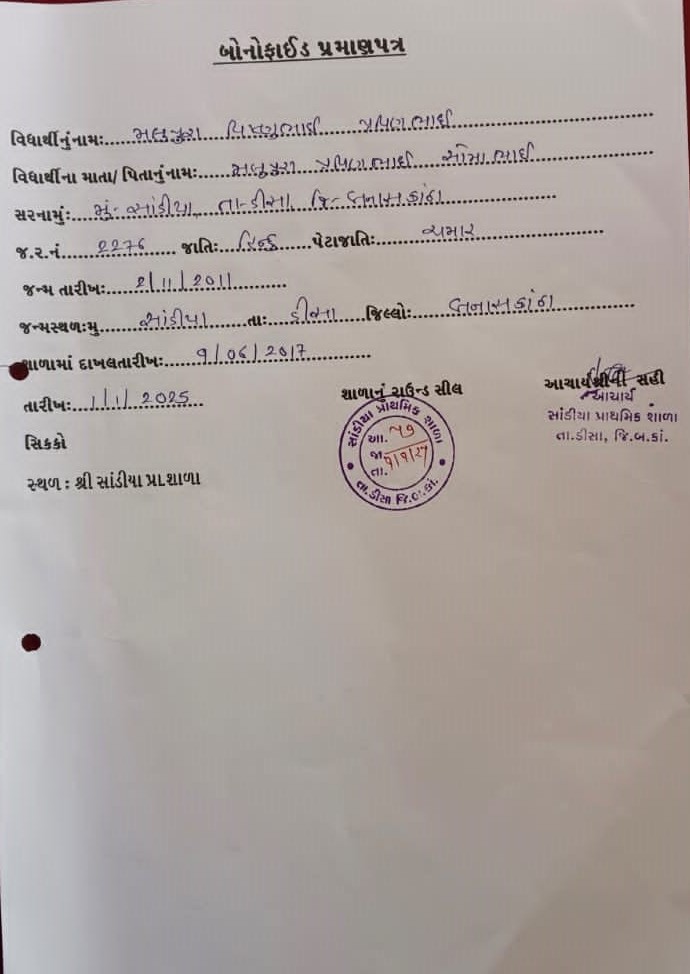 બોનોફાઈડ પ્રમાણપત્ર
વિદ્યાર્થીનું નામઃ મલુપુરા વિષ્ણુભાઈ પ્રવિણભાઈ
વિદ્યાર્થીના માતા/ પિતાનું નામઃ મલુપુરા પ્રવિણભાઈ સોમાભાઈ
સરનામુંઃ મું-સાંડીયા, તા-ડીસા, જિ-બનાસકાંઠા
જ.ર.નં 2276 જાતિઃ હિન્દુ પેટાજાતિઃ ચમાર
જન્મ તારીખઃ 2/11/2011
જન્મસ્થળઃમુ સાંડીયા તાઃ ડીસા જિલ્લોઃ બનાસકાંઠા
શાળામાં દાખલતારીખઃ 9/06/2017
તારીખઃ 1/1/2025 શાળાનું રાઉન્ડ સીલ આચાર્યશ્રીની સહી
આચાર્ય
સાંડીયા પ્રાથમિક શાળા
તા.ડીસા, જિ.બ.કાં.
સિકકો
સાંડીયા પ્રાથમિક શાળા
આ.
જા
તા.
તા.ડીસા જિ.બ.કાં.
સ્થળ : શ્રી સાંડીયા પ્રા.શાળા